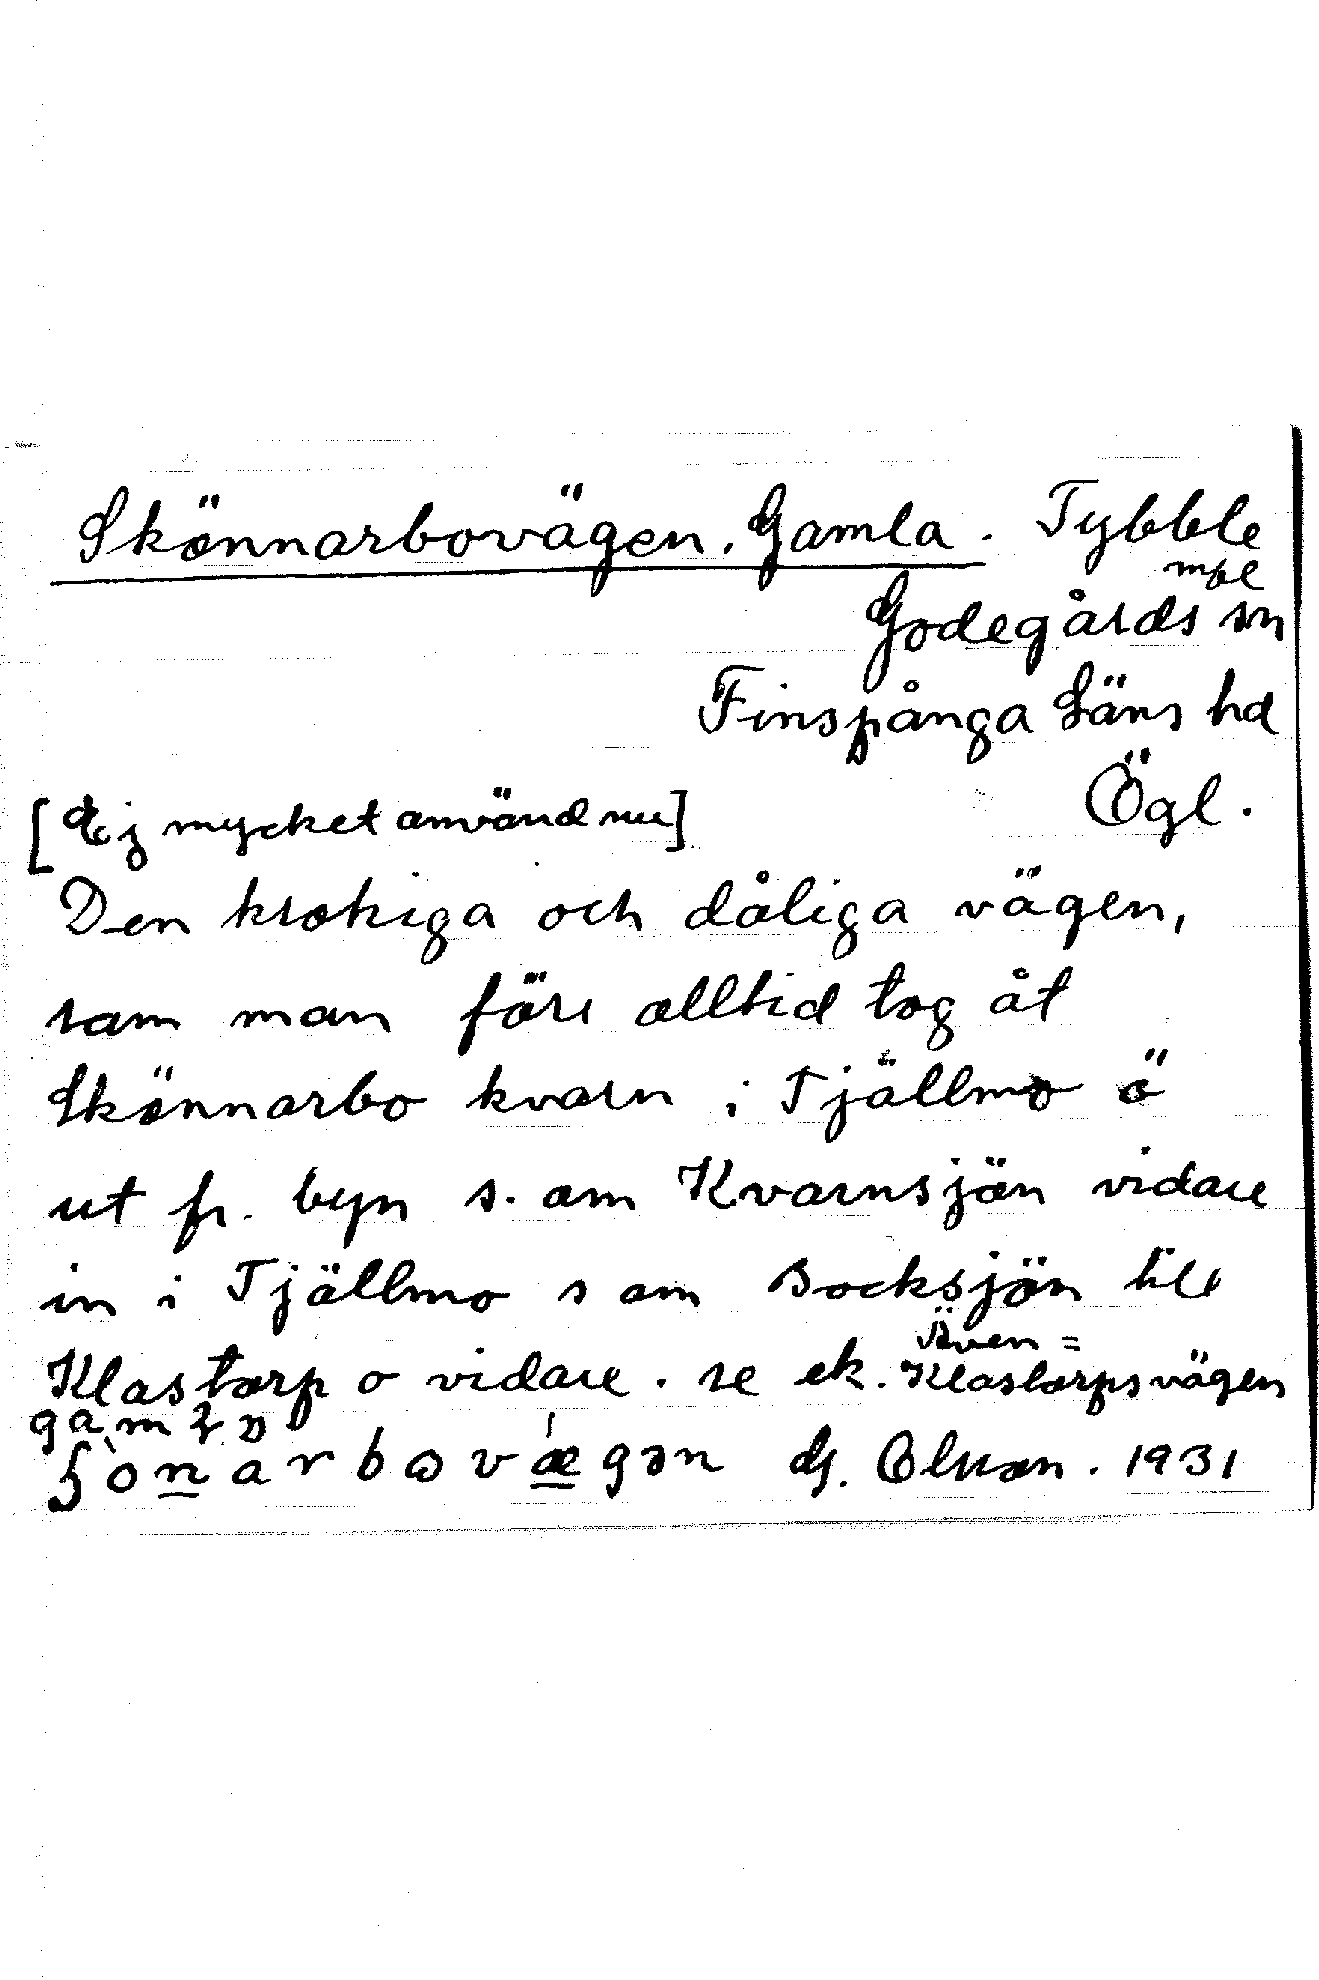 Skönnarbovägen, Gamla. Tybble
mbl
Godegårds sn
Finspånga läns hd
[Ej mycket använd nu] Ögl.
Den krokiga och dåliga vägen,
som man förr alltid tog åt
Skönnarbo kvarn i Tjällmo ö
ut fr. byn s. om Kvarnsjön vidare
in i Tjällmo s om Bocksjön till
Klastorp o vidare. se ek. Även =
Klastorpsvägen
G. Olsson. 1931